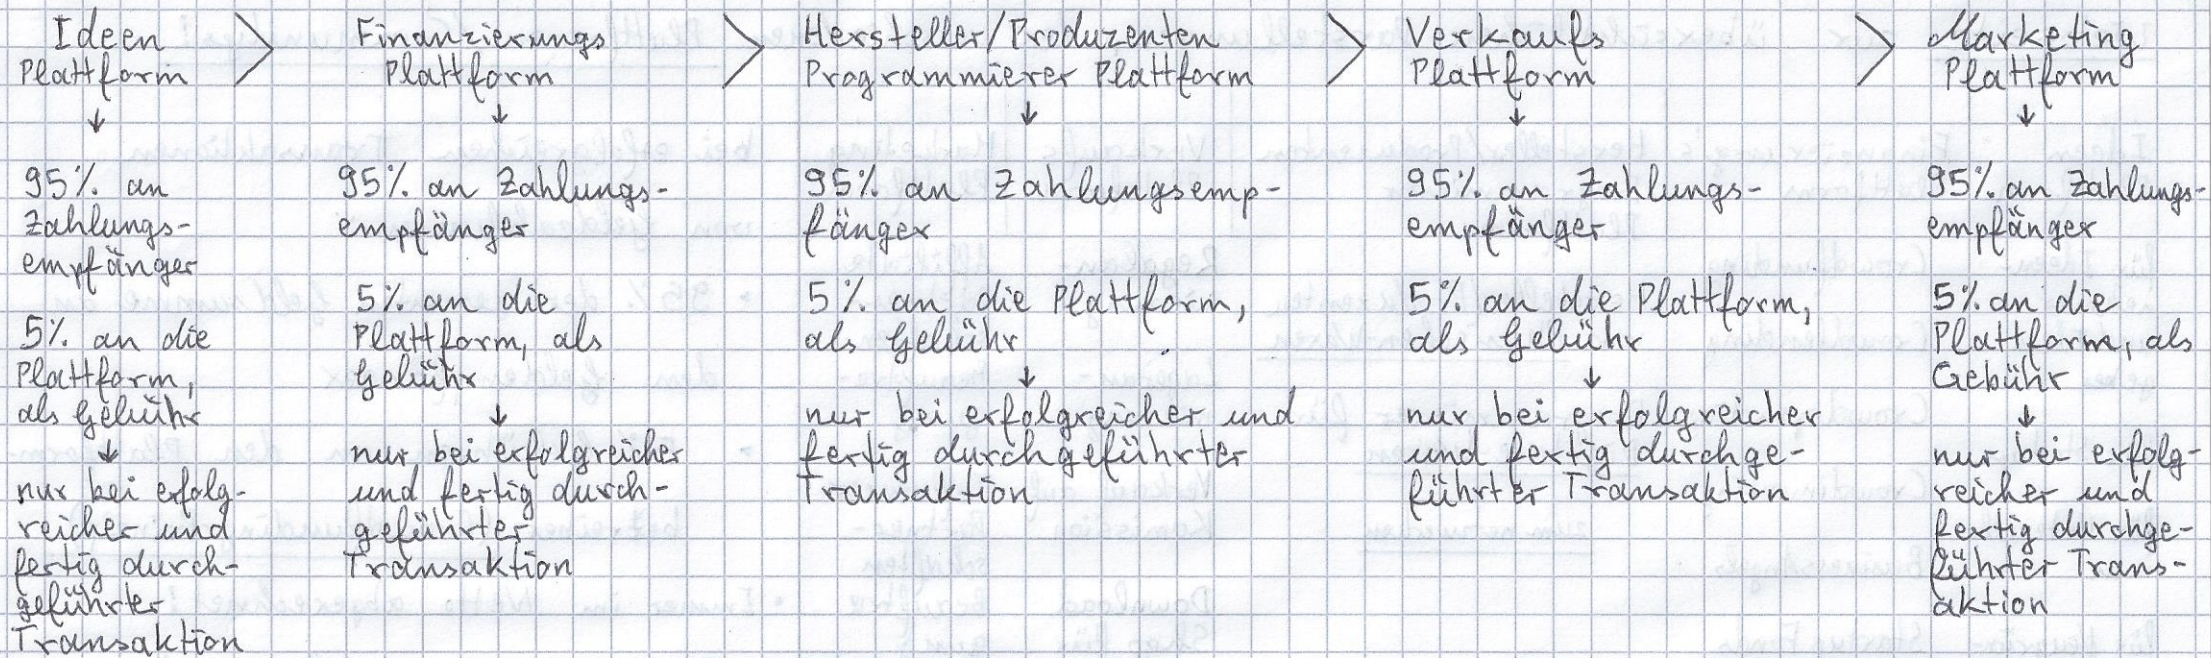 Ideen
Plattform
↓
95% an
Zahlungs-
empfänger
5% an die
Plattform,
als Gebühr
↓
nur bei erfolg-
reicher und
fertig durch-
geführter
Transaktion
>
Finanzierungs
Plattform
↓
95% an Zahlungs-
empfänger
5% an die
Plattform, als
Gebühr
↓
nur bei erfolgreicher
und fertig durch-
geführter
Transaktion
>
Hersteller/Produzenten
Programmierer Plattform
↓
95% an Zahlungsemp-
fänger
5% an die Plattform,
als Gebühr
↓
nur bei erfolgreicher und
fertig durchgeführter
Transaktion
>
Verkaufs
Plattform
↓
95% an Zahlungs-
empfänger
5% an die Plattform,
als Gebühr
↓
nur bei erfolgreicher
und fertig durchge-
führter Transaktion
>
Marketing
Plattform
↓
95% an Zahlungs-
empfänger
5% an die
Plattform, als
Gebühr
↓
nur bei erfolg-
reicher und
fertig durchge-
führter Trans-
aktion